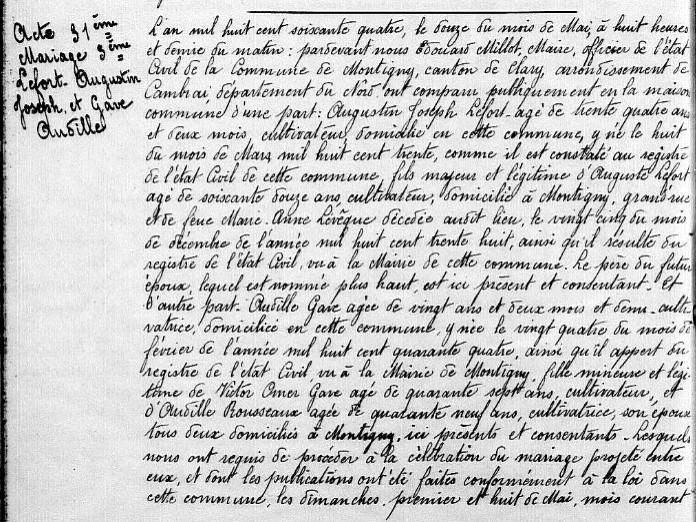 Acte 31ème
Mariage 3ème
Lefort Augustin
Joseph, et Gave
Audille
L'an mil huit cent soixante quatre, le douze du mois de Mai, à huit heures
et demie du matin : pardevant nous Edouard Millot, Maire, officier de l'état
Civil de la Commune de Montigny, canton de Clary, arrondissement de
Cambrai, département du Nord, ont comparu publiquement en la maison
commune d'une part : Augustin Joseph Lefort agé de trente quatre ans
et deux mois, cultivateur, domicilié en cette commune, y né le huit
du mois de Mars mil huit cent trente, comme il est constaté au registre
de l'état Civil de cette commune, fils majeur et légitime d'Auguste Lefort
agé de soixante douze ans, cultivateur, domicilié à Montigny, grand'rue
et de feue Marie-Anne Lévêque décédée audit lieu, le vingt cinq du mois
de décembre de l'année mil huit cent trente huit, ainsi qu'il résulte du
registre de l'état Civil, vu à la Mairie de cette commune. Le père du futur
époux, lequel est nommé plus haut, est ici présent et consentant. Et
d'autre part Audille Gave agée de vingt ans et deux mois et demi, culti-
vatrice, domiciliée en cette commune, y née le vingt quatre du mois de
février de l'année mil huit cent quarante quatre, ainsi qu'il appert du
registre de l'état Civil vu à la Mairie de Montigny, fille mineure et légi-
time de Victor Omer Gave agé de quarante sept ans, cultivateur, et
d'Audille Rousseaux agée de quarante neuf ans, cultivatrice, son épouse
tous deux domiciliés à Montigny, ici présents et consentants. Lesquels
nous ont requis de procéder à la célébration du mariage projeté entre
eux, et dont les publications ont été faites conformément à la loi dans
cette commune, les dimanches, premier et huit de Mai, mois courant